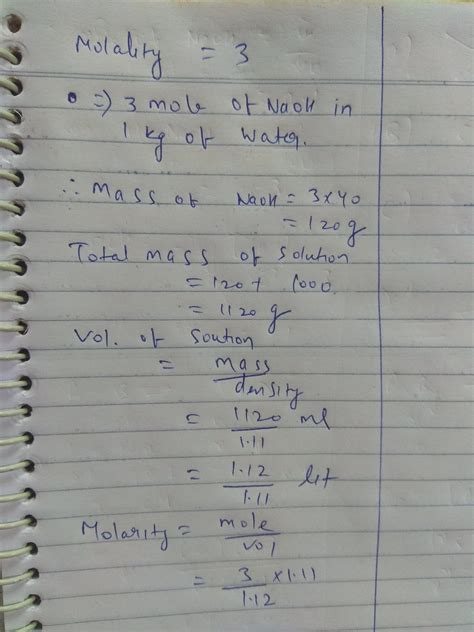 Molality = 3
=) 3 mole of NaOH in
1 kg of water.
∴ Mass of NaOH = 3×40
= 120 g
Total mass of solution
= 120 + 1000
= 1120 g
Vol. of soution
= mass
density
= 1120 ml
1.11
= 1.12 lit
1.11
Molarity = mole
vol
= 3 ×1.11
1.12